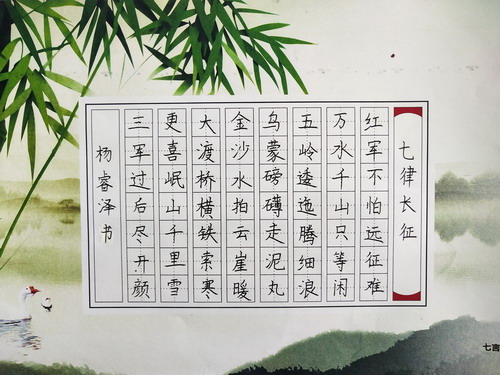 七律长征
红军不怕远征难
万水千山只等闲
五岭逶迤腾细浪
乌蒙磅礴走泥丸
金沙水拍云崖暖
大渡桥横铁索寒
更喜岷山千里雪
三军过后尽开颜
杨睿泽书
七言